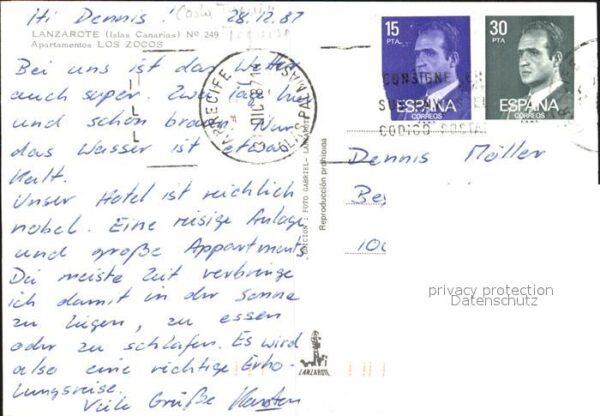 Hi Dennis! 28.12.87
LANZAROTE (Islas Canarias) Nº 249
Apartamentos LOS ZOCOS
Bei uns ist das Wetter
auch super. Zwei Tage hier
und schön braun. Nur
das Wasser ist etwas
kalt.
Unser Hotel ist reichlich
nobel. Eine riesige Anlage
und große Appartments
Die meiste Zeit verbringe
ich damit in der Sonne
zu liegen, zu essen
oder zu schlafen. Es wird
also eine richtige Erho-
lungsreise.
Viele Grüße Karsten
ARRECIFE
LAS PALMAS
EDICION: FOTO GABRIEL-
Reproducción prohibida
LANZAROTE
15
PTA
ESPAÑA
CORREOS
30
PTA
ESPAÑA
CORREOS
CONSIGNE
CODIGO POSTAL
Dennis Möller
Be
100
privacy protection
Datenschutz